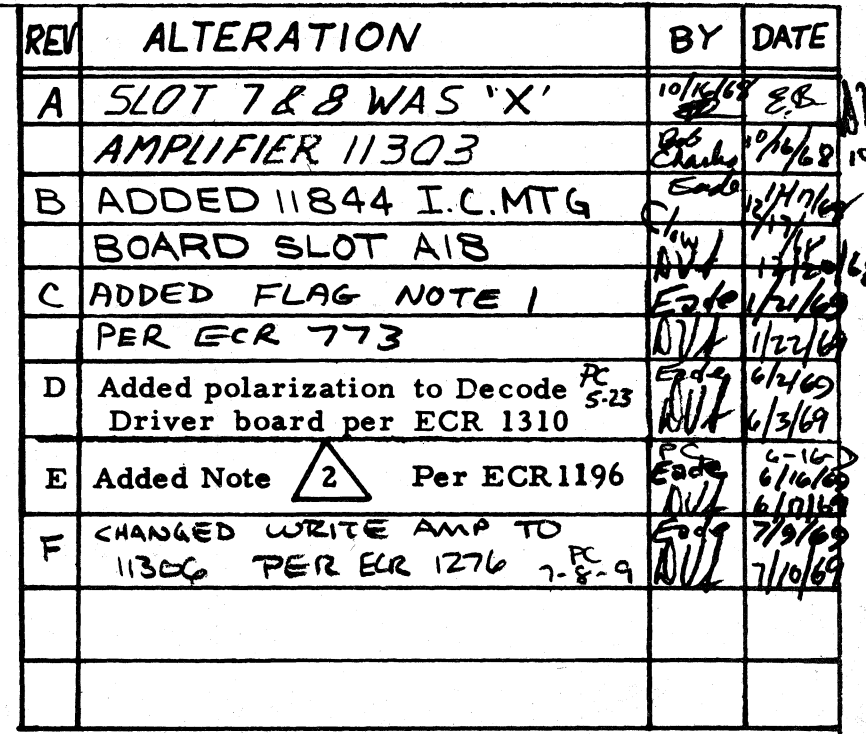 REV ALTERATION BY DATE
A SLOT 7 & 8 WAS "X" 10/16/68 E.B.
AMPLIFIER 11303 Bob Charles 10/16/68
B ADDED 11844 I.C. MTG Eade
BOARD SLOT A18 DVt
C ADDED FLAG NOTE 1 Eade 1/21/69
PER ECR 773 DVt 1/22/69
D Added polarization to Decode PC 5-23 Eade 6/2/69
Driver board per ECR 1310 DVt 6/3/69
PC 6-16
E Added Note 2 Per ECR1196 Eade 6/16/69
DVt 6/17/69
F CHANGED WRITE AMP TO Eade 7/9/69
11306 PER ECR 1276 PC 7-8-9 DVt 7/10/69